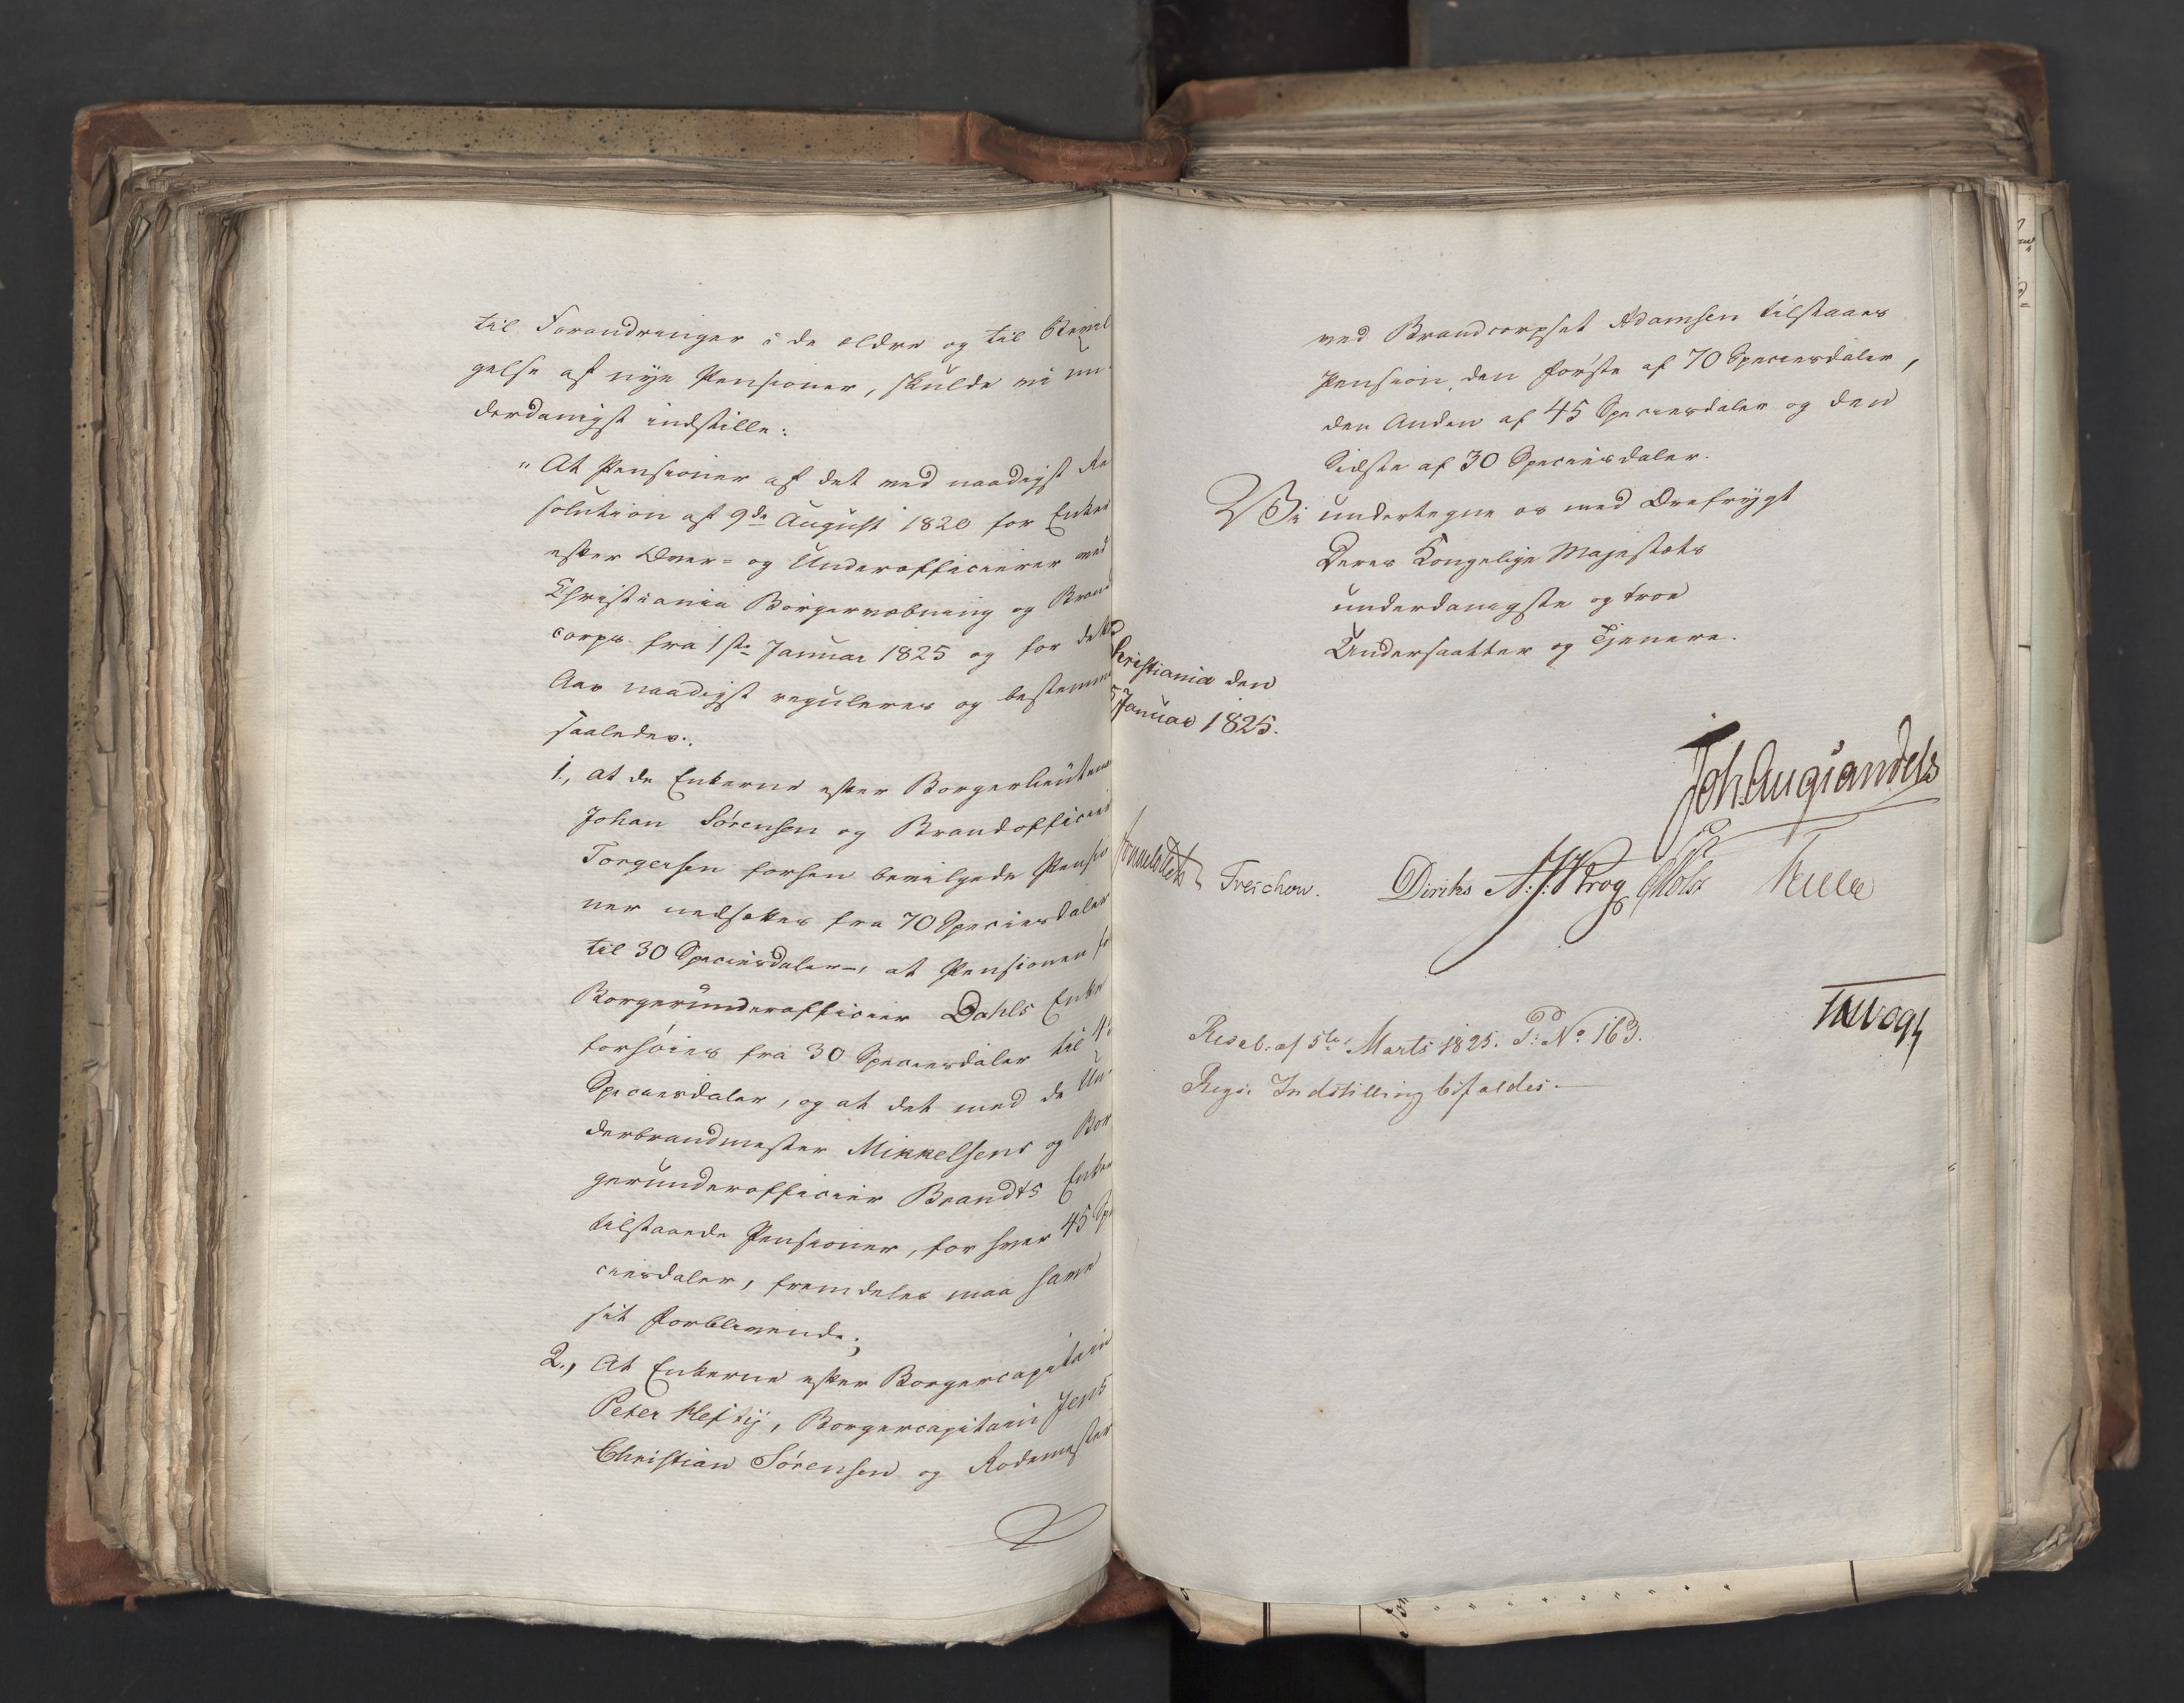 til Forandringer i de ældre og til Bevil
gelse af nye Pensioner, skulde vi un-
derdanigst indstille:
"At Pensioner af det ved naadigst Re
solution af 9de August 1820 for Enker
efter Over- og Underofficierer ved
Christiania Borgervæbning og Brand
corps fra 1ste Januar 1825 og for dette
Aar naadigst reguleres og bestemmes
saaledes:
1., at de Enkerne efter Borgerlieutenant
Johan Sørensen og Brandofficier
Torgersen forhen bevilgede Pensio
ner nedsættes fra 70 Speciesdaler
til 30 Speciesdaler, at Pensionen for
Borgerunderofficier Dahls Enke
forhøies fra 30 Speciesdaler til 45
Speciesdaler, og at det med de Un-
derbrandmester Mikkelsens og Bor
gerunderofficier Brandts Enker
tilstaaede Pensioner, for hver 45 Spe
ciesdaler, fremdeles maa have
sit Forblivende;
2., At Enkerne efter Borgercapitain
Peter Heftÿ, Borgercapitain Jens
Christian Sørensen og Rodemester
ved Brandcorpset Adamsen tilstaaes
Pension, den første af 70 Speciesdaler,
den Anden af 45 Speciesdaler og den
Sidste af 30 Speciesdaler.
Vi undertegne os med Ærefrygt
Deres Kongelige Majestæts
underdanigste og troe
Undersaatter og Tjenere.
Christiania den
5 Januar 1825.
Joh. Aug. Sandels
Sommerhielm Treschow. Diriks A. J. Krog P Holst
TH Vogt
Resol: af 5te Marts 1825. P: No 163.
Regs. Indstilling bifaldes.